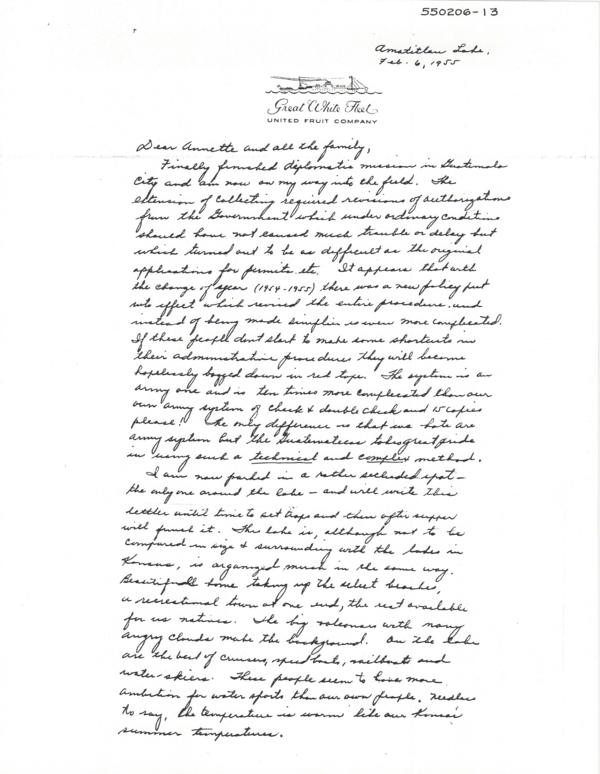 550206-13
Amatitlan Lake,
Feb. 6, 1955
Great White Fleet
UNITED FRUIT COMPANY
Dear Annette and all the family,
Finally finished diplomatic mission in Guatemala
City and am now on my way into the field. The
extension of collecting required revisions of authorizations
from the Government which under ordinary conditions
should have not caused much trouble or delay but
which turned out to be as difficult as the original
applications for permits etc. It appears that with
the change of year (1954-1955) there was a new policy put
into effect which revised the entire procedure and
instead of being made simplier is even more complicated.
If these people dont start to make some shortcuts in
their administrative procedures they will become
hopelessly bogged down in red tape. The system is an
army one and is ten times more complicated than our
own army system of check & double check and 15 copies
please! The only difference is that we hate our
army system but the Guatematecas takes great pride
in using such a technical and complex method.
I am now parked in a rather secluded spot -
the only one around the lake - and will write this
letter until time to set traps and then after supper
will finish it. The lake is, although not to be
compared in size & surrounding with the lakes in
Kansas, is organized much in the same way.
Beautiful home taking up the select beaches,
a recreational town at one end, the rest available
for us natives. The big volcanoes with many
angry clouds make the background. On the lake
are the best of cruisers, speed boats, sailboats and
water-skiers. These people seem to have more
ambition for water sports than our own people. Needless
to say, the temperature is warm like our Kansas
summer temperatures.